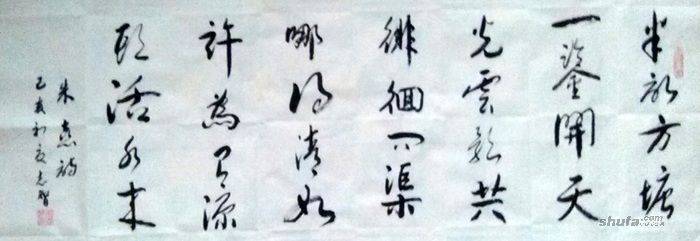 半畝方塘
一鑒開天
光雲影共
徘徊问渠
哪得清如
許為有源
頭活水来
朱熹詩
己亥初夏志